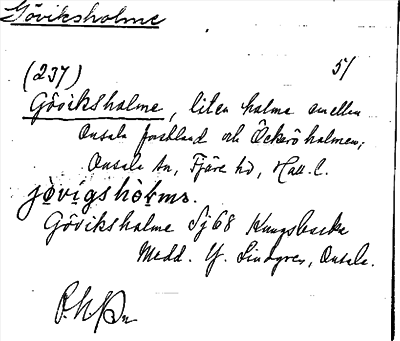 Göviksholme
5/
(237)
Göviksholme, liten holme mellan
Onsala fastland och Öckerö holmen,
Onsala sn, Fjäre hd, Hall. l.
jövigshòlmə.
Göviksholme Sj68 Kungsbacka
Medd. Y. Lindgren, Onsala.